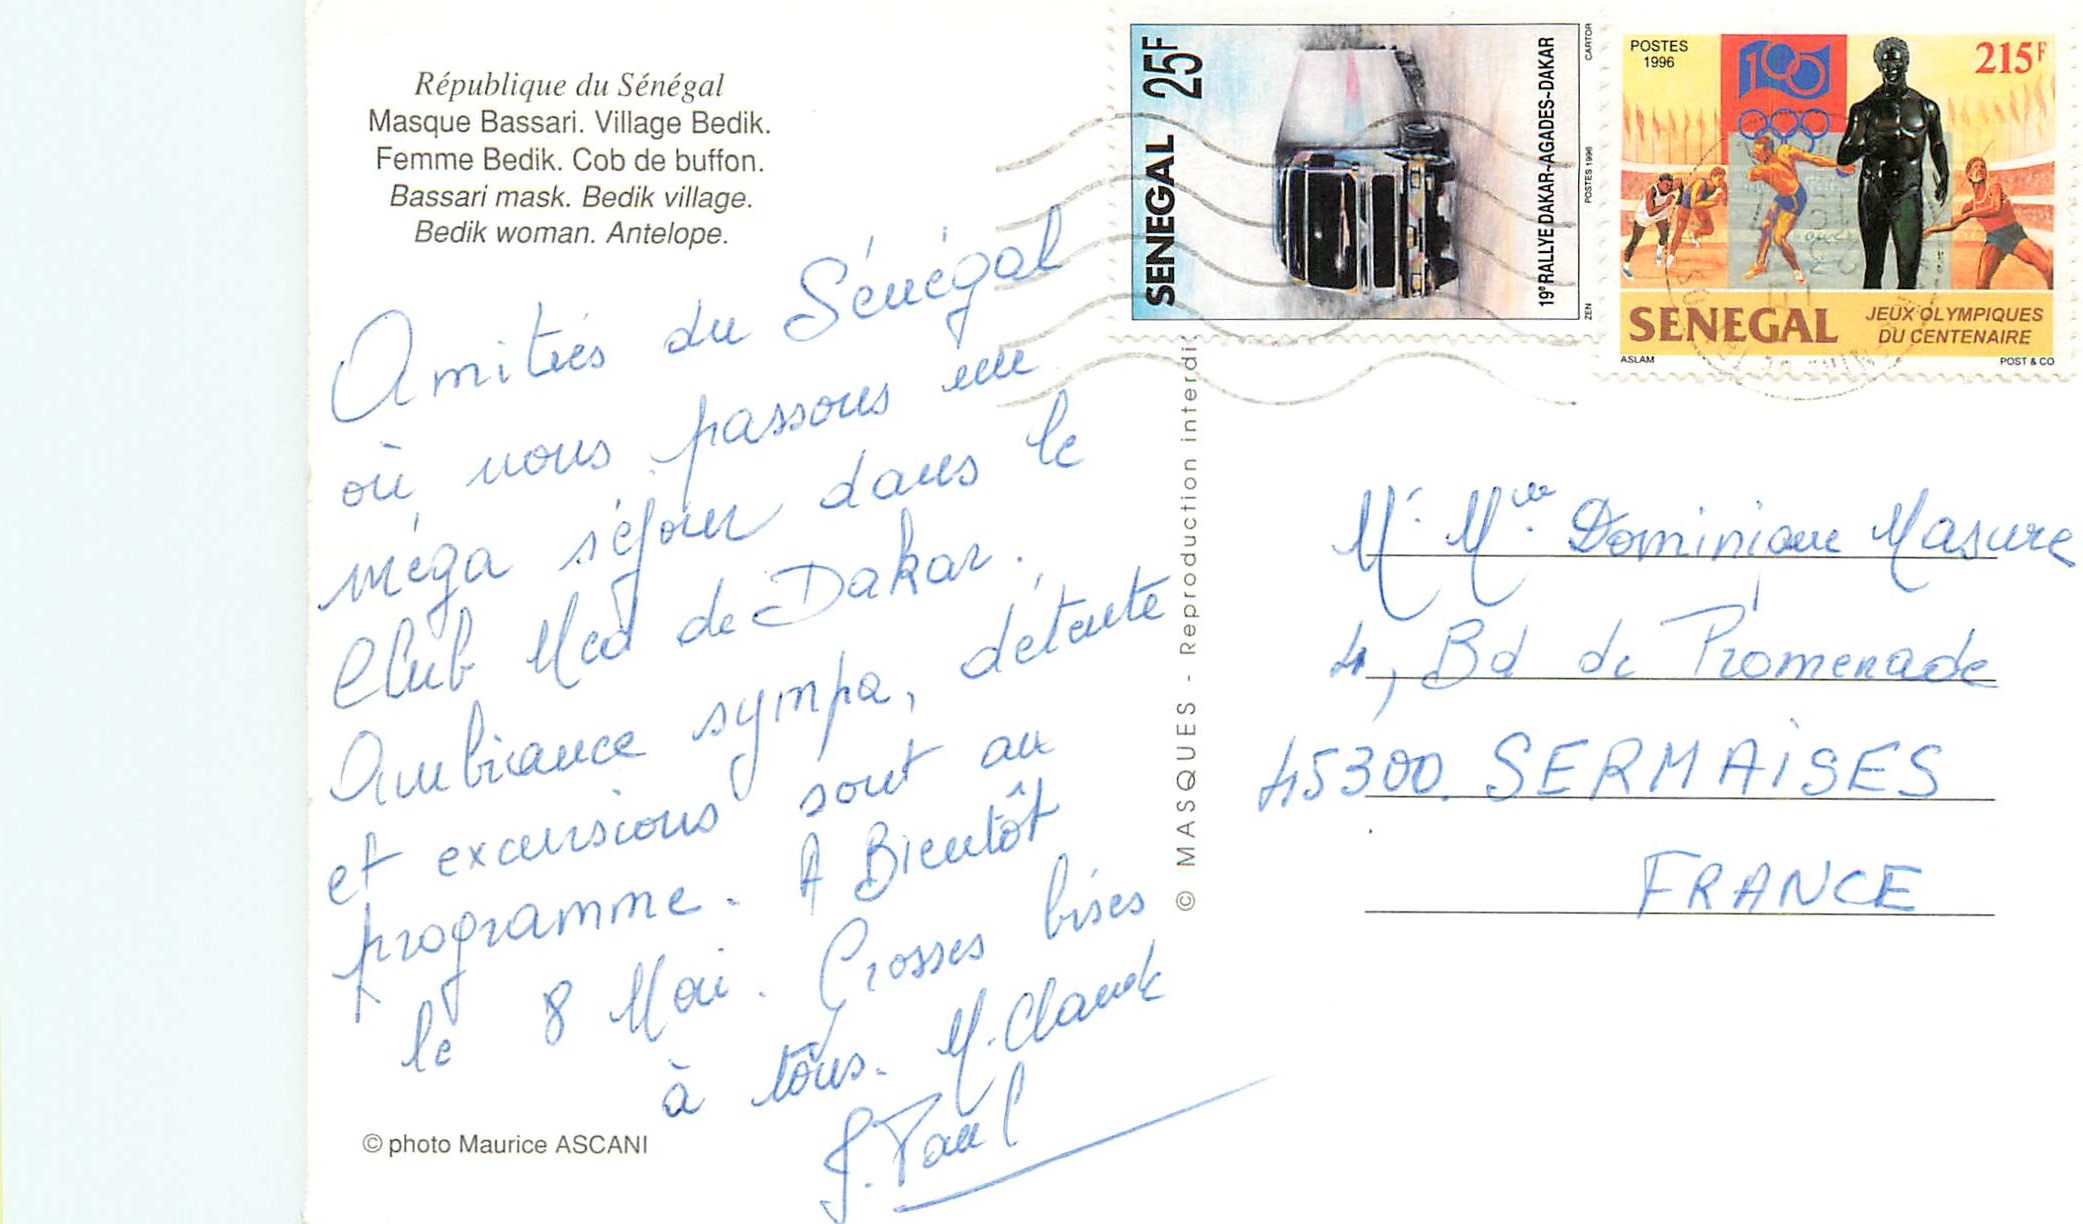 République du Sénégal
Masque Bassari. Village Bedik.
Femme Bedik. Cob de buffon.
Bassari mask. Bedik village.
Bedik woman. Antelope.
Amitiés du Sénégal
où nous passons un
méga séjour dans le
Club Med de Dakar.
Ambiance sympa, détente
et excursions sont au
programme. A Bientôt
le 8 Mai. Grosses bises
à tous. M. Claude
J. Paul
© photo Maurice ASCANI
© MASQUES - Reproduction interdi
SENEGAL 25F
19e RALLYE DAKAR-AGADES-DAKAR
ZEN POSTES 1996 CARTOR
POSTES
1996
215F
SENEGAL
JEUX OLYMPIQUES
DU CENTENAIRE
ASLAM POST & CO
Mr. Mme. Dominique Masure
4, Bd de Promenade
45300. SERMAISES
FRANCE